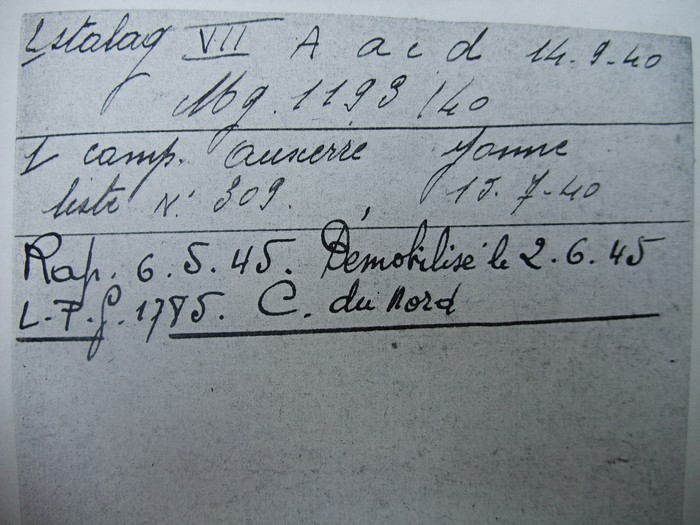 stalag VII A a c d 14.9.40
Mg. 1193/40
camp. auxerre yonne
liste N° 309. 15.7-40
Rap. 6.5.45. Démobilisé le 2.6.45
1785. C. du Nord